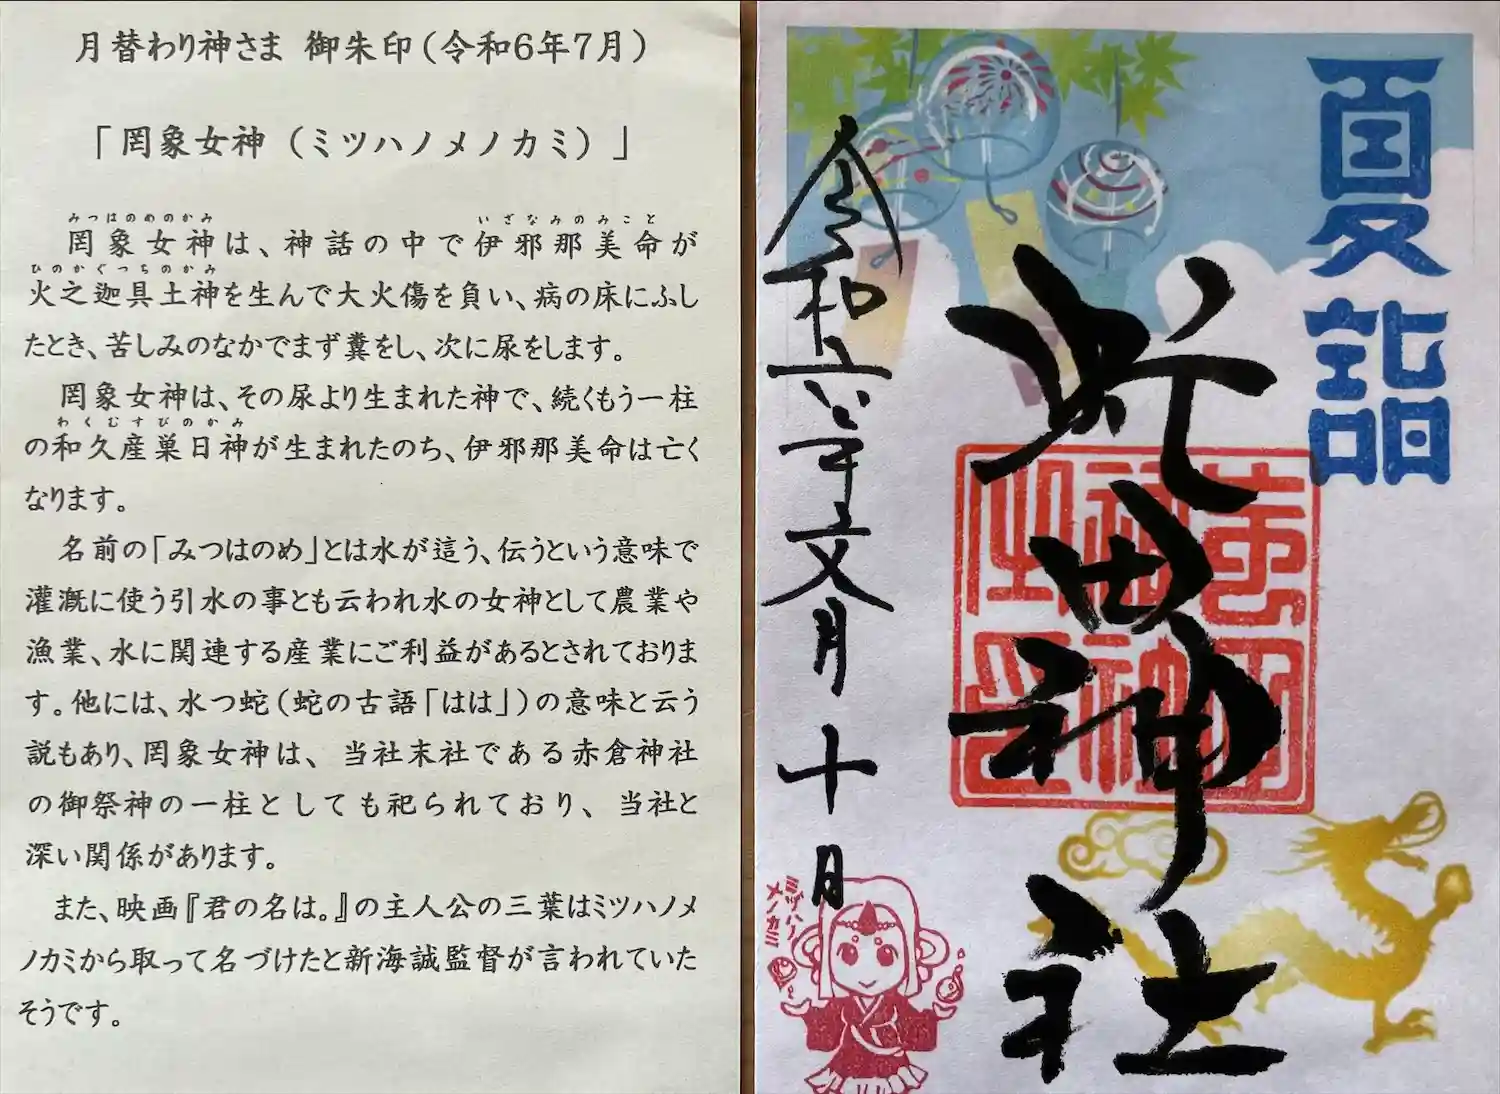 月替わり神さま 御朱印(令和6年7月)
「罔象女神(ミツハノメノカミ)」
みつはのめのかみ いざなみのみこと
罔象女神は、神話の中で伊邪那美命が
ひのかぐつちのかみ
火之迦具土神を生んで大火傷を負い、病の床にふし
たとき、苦しみのなかでまず糞をし、次に尿をします。
罔象女神は、その尿より生まれた神で、続くもう一柱
わくむすびのかみ
の和久産巣日神が生まれたのち、伊邪那美命は亡く
なります。
名前の「みつはのめ」とは水が這う、伝うという意味で
灌漑に使う引水の事とも云われ水の女神として農業や
漁業、水に関連する産業にご利益があるとされておりま
す。他には、水つ蛇(蛇の古語「はは」)の意味と云う
説もあり、罔象女神は、当社末社である赤倉神社
の御祭神の一柱としても祀られており、当社と
深い関係があります。
また、映画『君の名は。』の主人公の三葉はミツハノメ
ノカミから取って名づけたと新海誠監督が言われていた
そうです。
夏詣
虻田神社
令和六年文月十日
ミツハノメノカミ